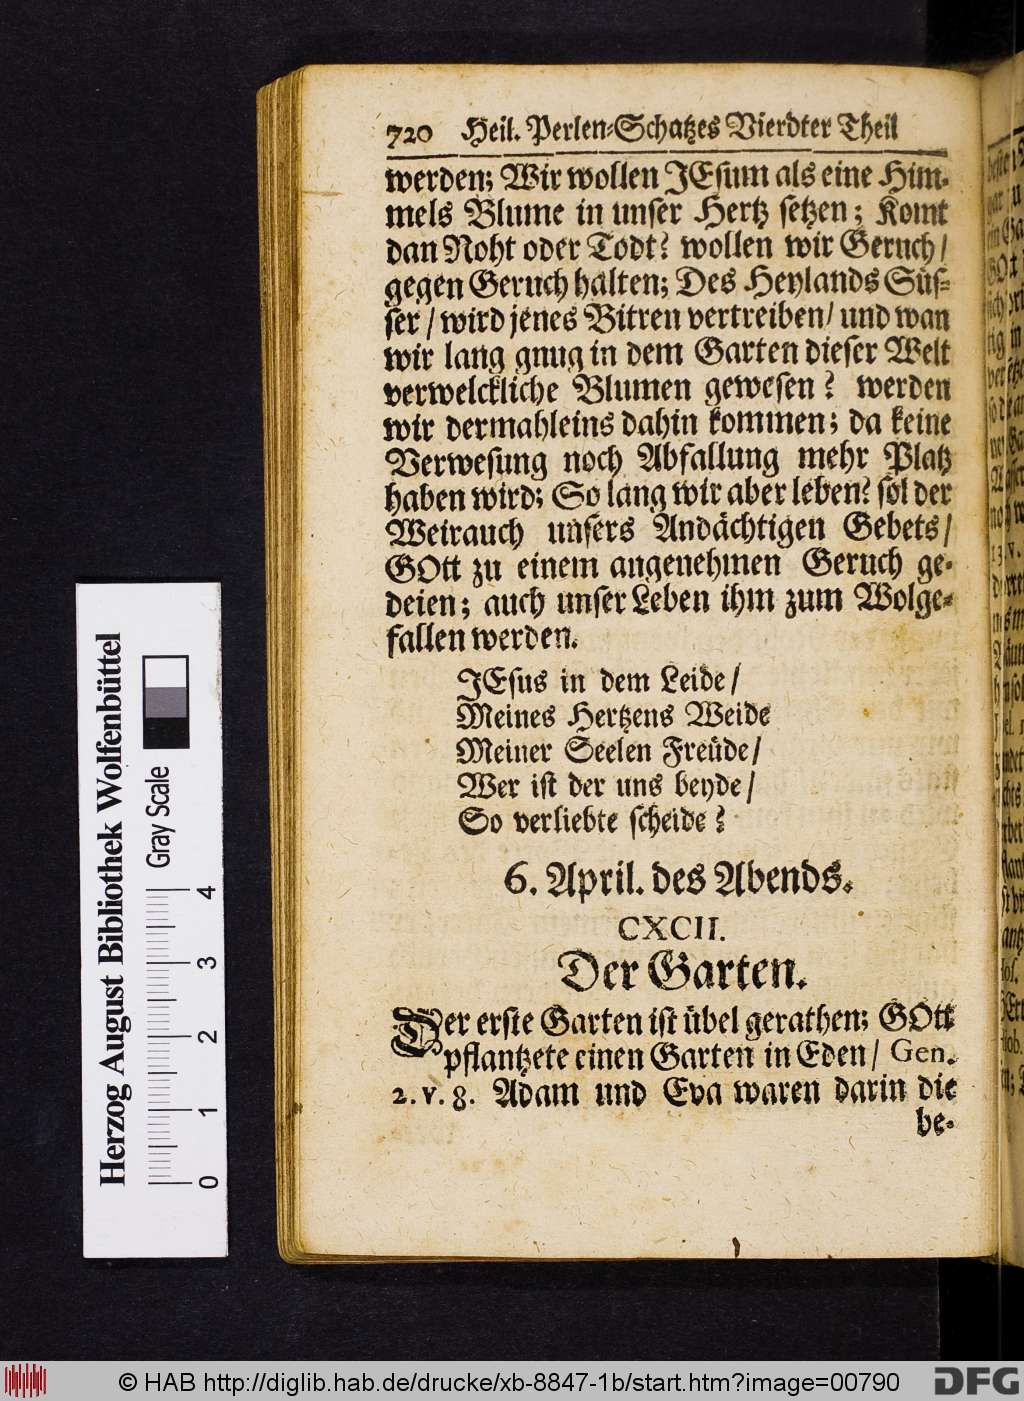 720 Heil. Perlen-Schatzes Vierdter Theil
werden; Wir wollen JEsum als eine Him-
mels Blume in unser Hertz setzen; Komt
dan Noht oder Todt? wollen wir Geruch/
gegen Geruch halten; Des Heylands Süs-
ser/ wird jenes Bitren vertreiben/ und wan
wir lang gnug in dem Garten dieser Welt
verwelckliche Blumen gewesen? werden
wir dermahleins dahin kommen; da keine
Verwesung noch Abfallung mehr Platz
haben wird; So lang wir aber leben? sol der
Weirauch unsers Andächtigen Gebets/
GOtt zu einem angenehmen Geruch ge-
deien; auch unser Leben ihm zum Wolge-
fallen werden.
JEsus in dem Leide/
Meines Hertzens Weide
Meiner Seelen Freüde/
Wer ist der uns beyde/
So verliebte scheide?
6. April. des Abends.
CXCII.
Der Garten.
Der erste Garten ist übel gerathen; GOtt
pflantzete einen Garten in Eden/ Gen.
2. v. 8. Adam und Eva waren darin die
be-
Herzog August Bibliothek Wolfenbüttel
Gray Scale
0 1 2 3 4
© HAB http://diglib.hab.de/drucke/xb-8847-1b/start.htm?image=00790
DFG